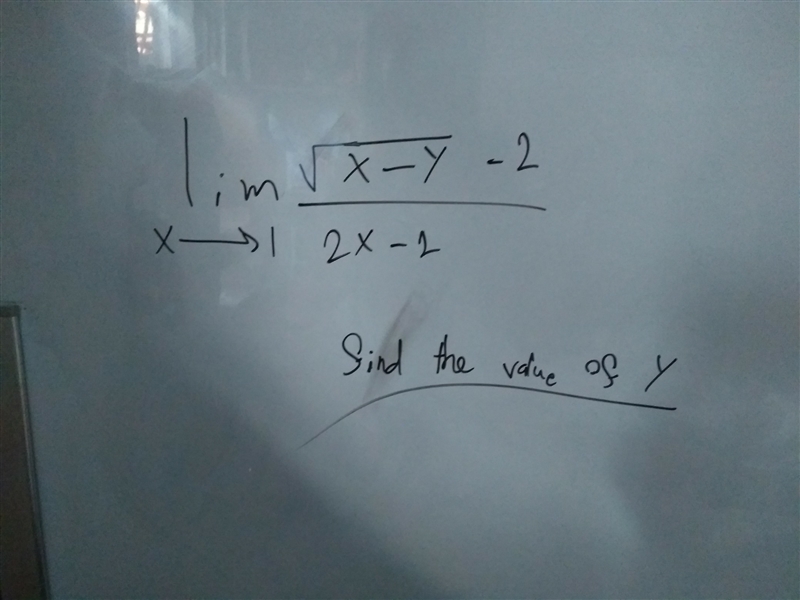 lim √x-y -2
x→1 2x-2
find the value of y